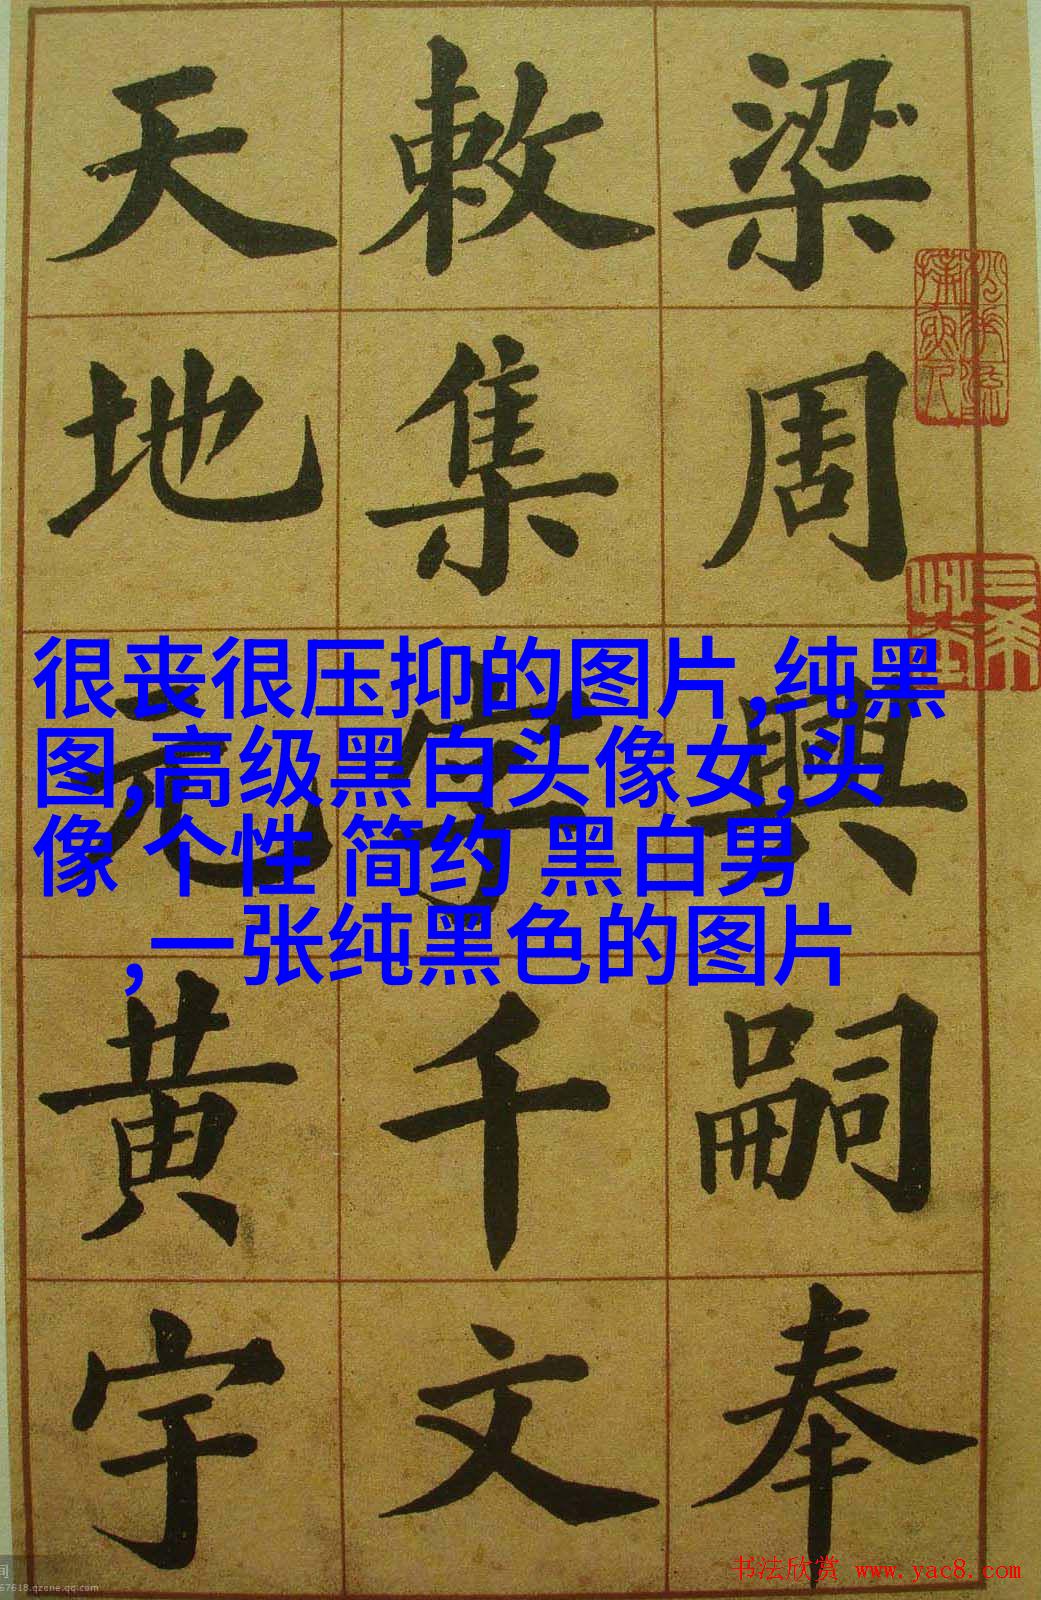 梁周興嗣奉
敕集字千文
天地元黄宇
很丧很压抑的图片,纯黑
图,高级黑白头像女,头
像 个性 简约 黑白男
,一张纯黑色的图片
书法欣赏 www.yac8.com
67618.qzone.qq.com